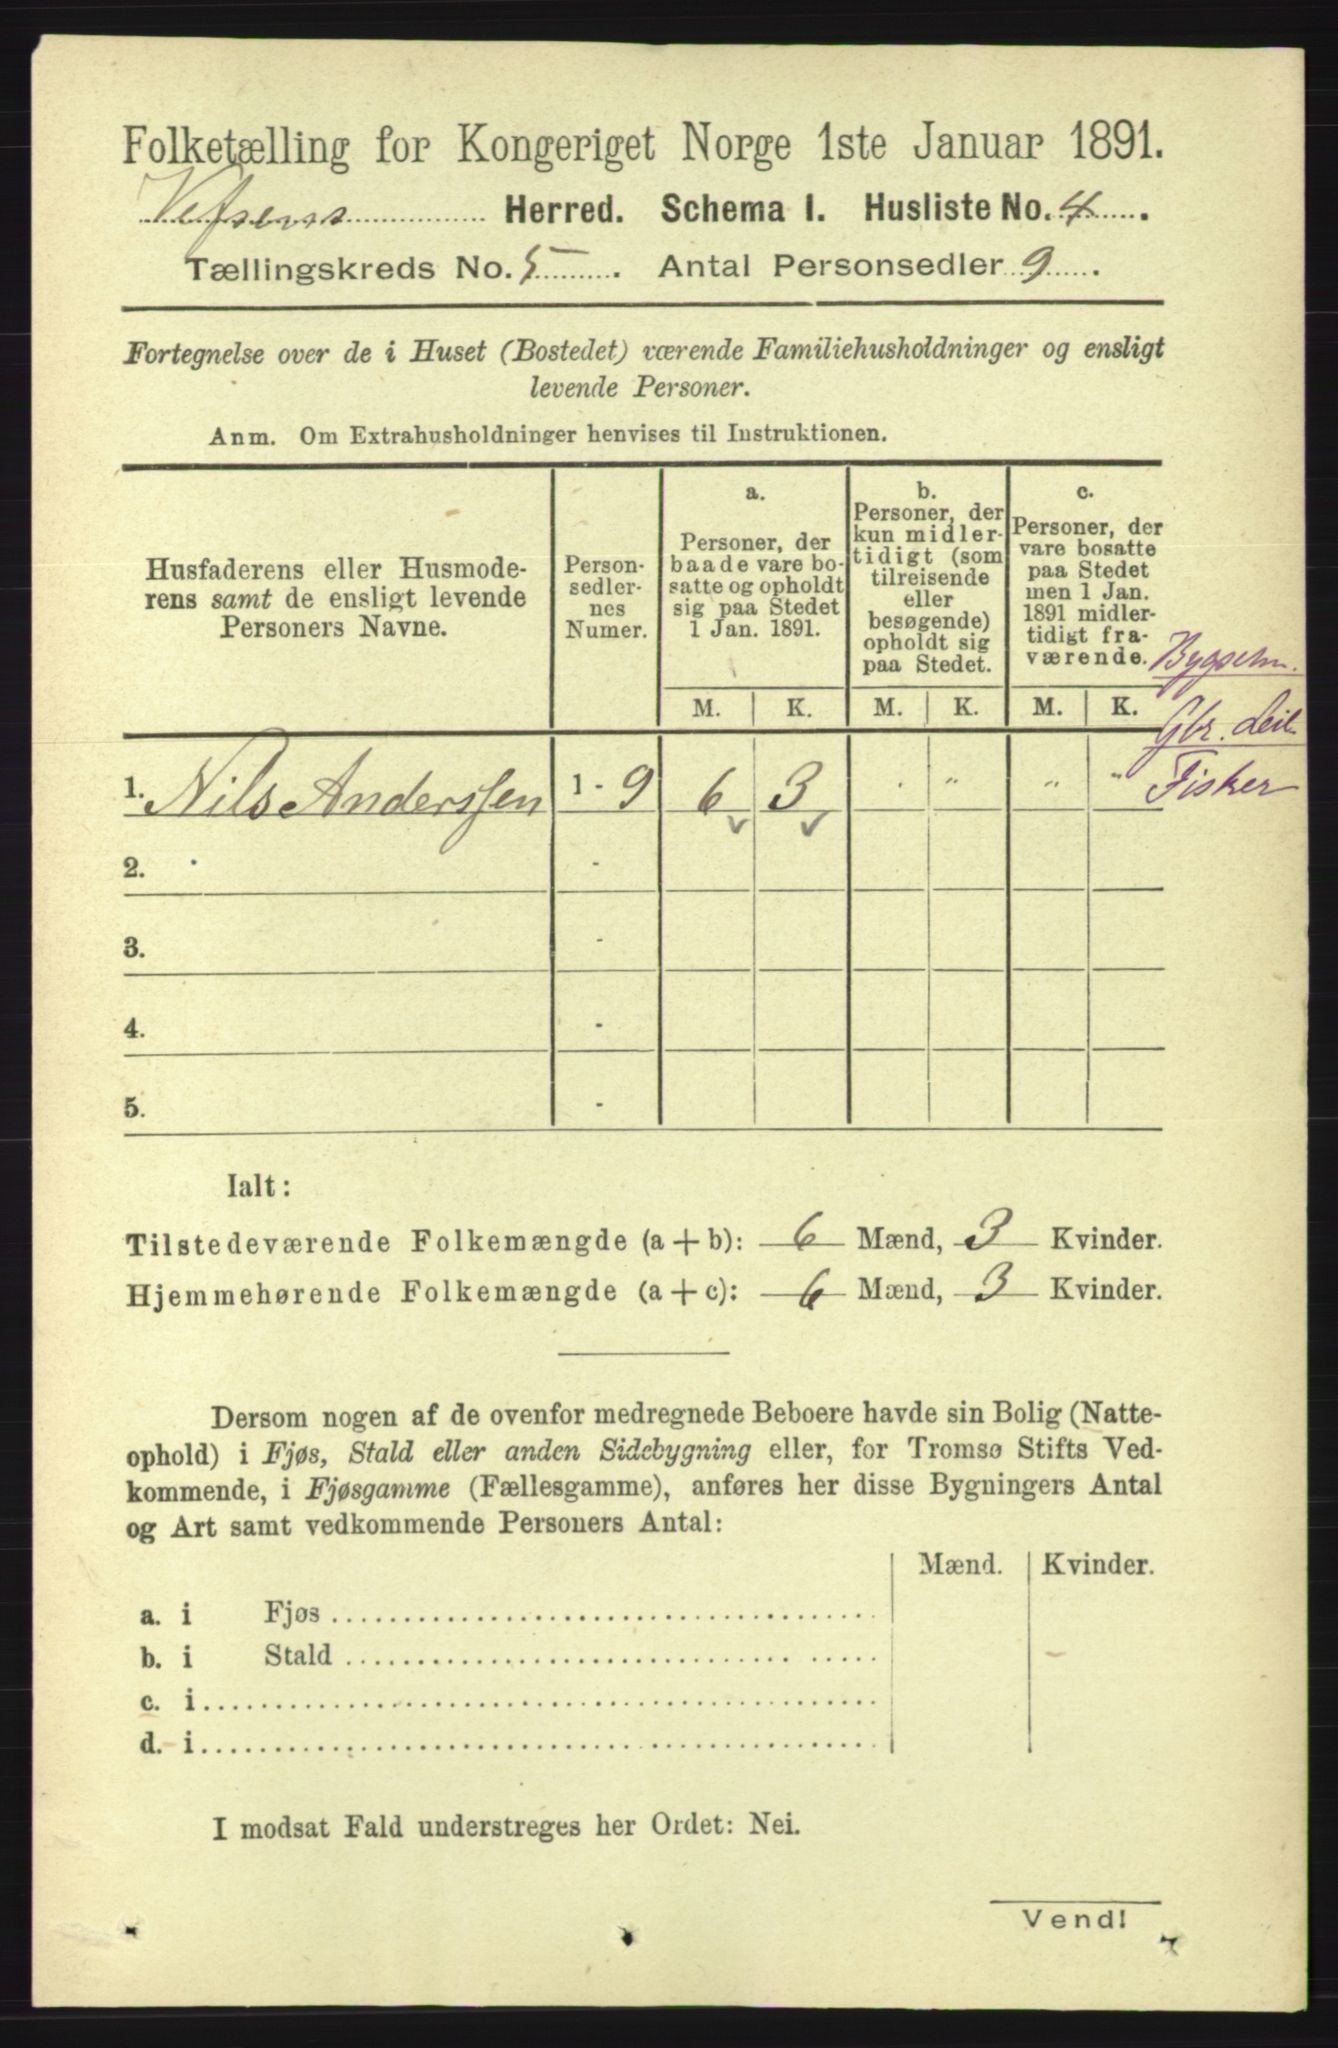 Folketælling for Kongeriget Norge 1ste Januar 1891.
Vefsens Herred. Schema I. Husliste No. 4.
Tællingskreds No. 5. Antal Personsedler 9.
Fortegnelse over de i Huset (Bostedet) værende Familiehusholdninger og ensligt
levende Personer.
Anm. Om Extrahusholdninger henvises til Instruktionen.
Husfaderens eller Husmode-
rens samt de ensligt levende
Personers Navne.
Person-
sedler-
nes
Numer.
a.
Personer, der
baade vare bo-
satte og opholdt
sig paa Stedet
1 Jan. 1891.
b.
Personer, der
kun midler-
tidigt (som
tilreisende
eller
besøgende)
opholdt sig
paa Stedet.
c.
Personer, der
vare bosatte
paa Stedet
men 1 Jan.
1891 midler-
tidigt fra-
værende.
M. K. M. K. M. K.
Gbr. Leil.
1. Nils Anderssen 1 - 9 6 3 " " " Fisker
2. -
3. -
4. -
5. -
Ialt:
Tilstedeværende Folkemængde (a + b): 6 Mænd, 3 Kvinder.
Hjemmehørende Folkemængde (a + c): 6 Mænd, 3 Kvinder.
Dersom nogen af de ovenfor medregnede Beboere havde sin Bolig (Natte-
ophold) i Fjøs, Stald eller anden Sidebygning eller, for Tromsø Stifts Ved-
kommende, i Fjøsgamme (Fællesgamme), anføres her disse Bygningers Antal
og Art samt vedkommende Personers Antal:
Mænd. Kvinder.
a. i Fjøs
b. i Stald
c. i
d. i
I modsat Fald understreges her Ordet: Nei.
Vend!